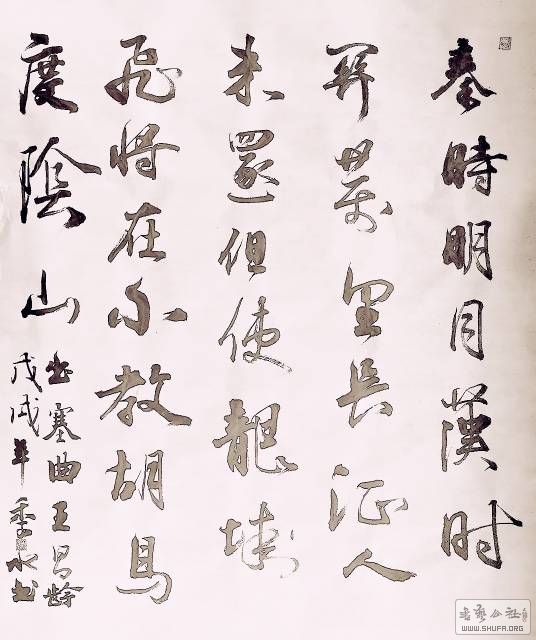 秦時明月漢时
関萬里長征人
未還但使龍城
飛将在不教胡馬
度陰山
出塞曲王昌齡
戊戌年季水书
書藝公社
WWW.SHUFA.ORG